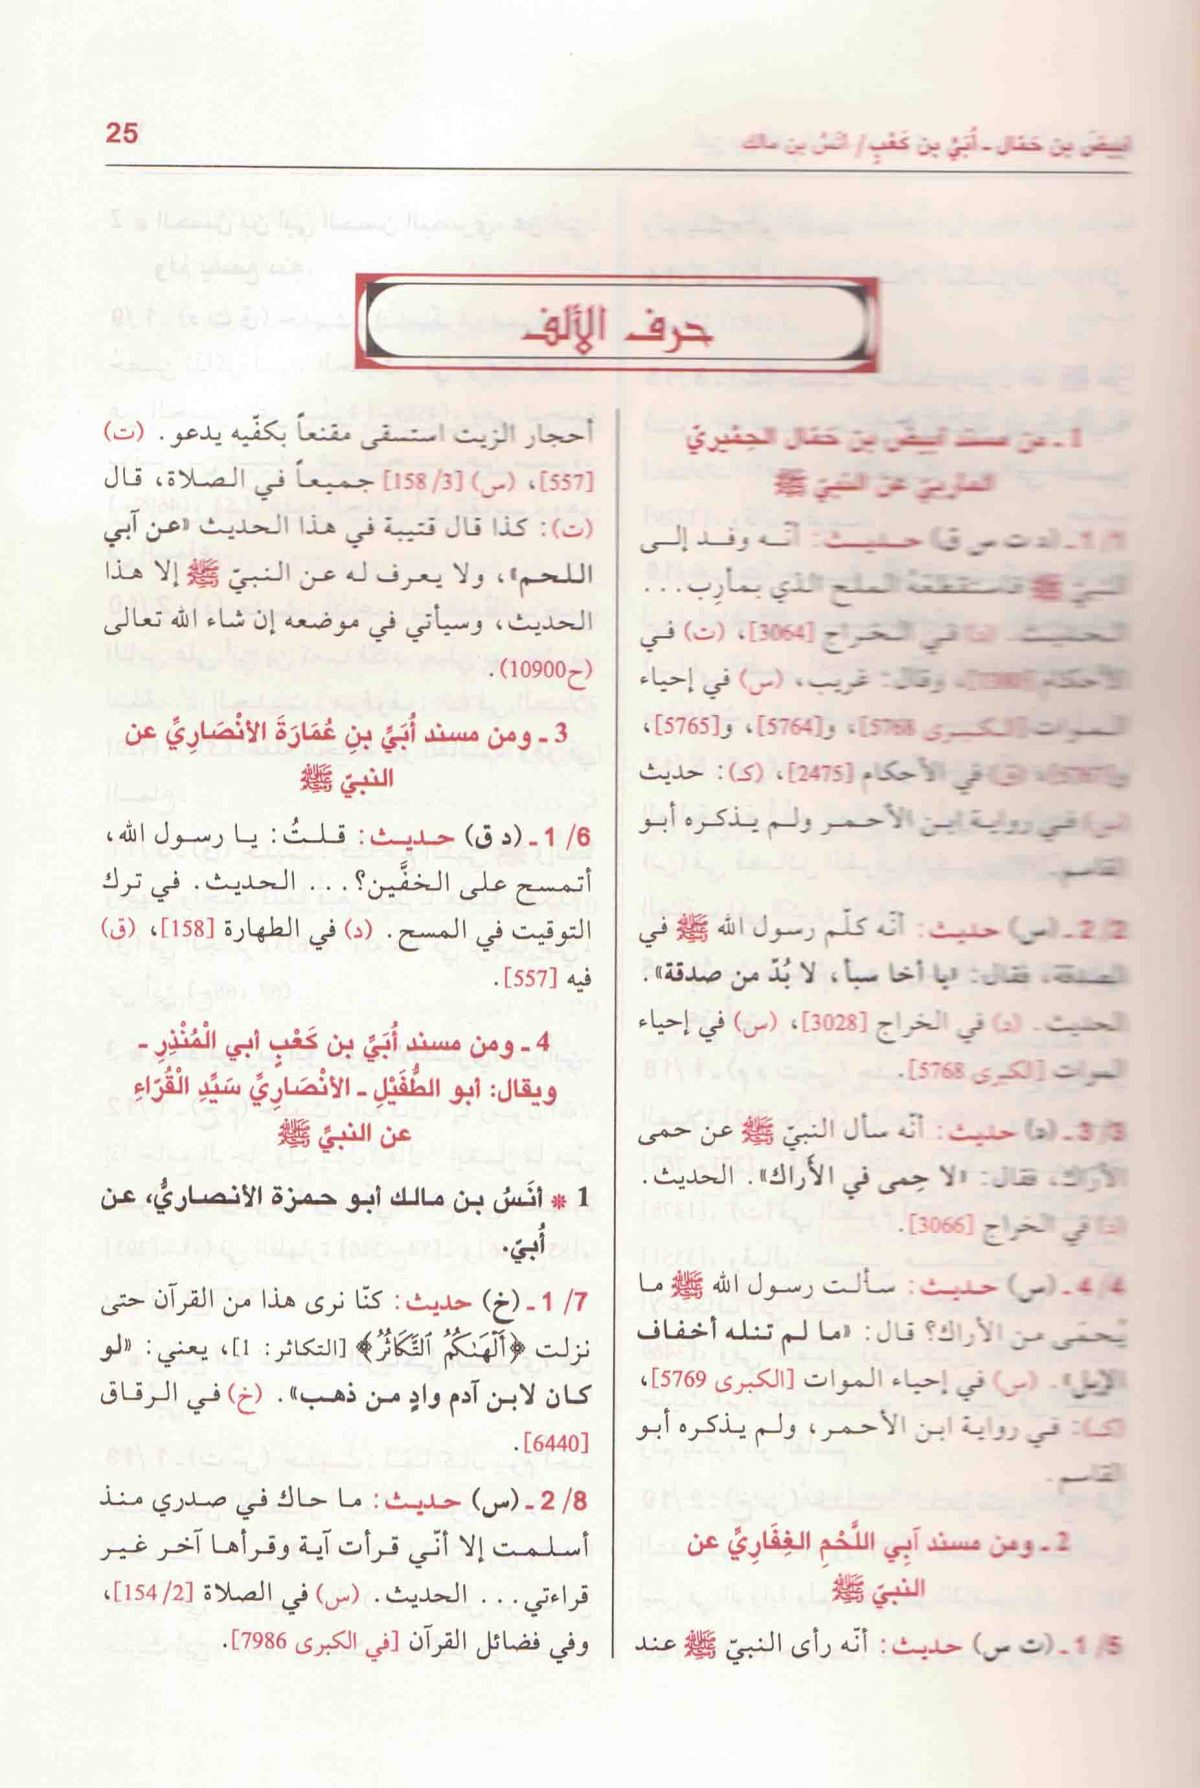 أبيض بن حَمّال ـ أُبَيّ بن كَعْبٍ/ أنَسُ بن مالك
25
حرف الألف
1 ـ من مسند أبيضَ بن حَمّال الحِمْيريّ
المأربيّ عن النبيّ ﷺ
1/1 ـ (د ت س ق) حديث: أنّه وفد إلى
النبيّ ﷺ فاستقطعَهُ الملح الذي بمأرِب...
الحديث. (د) في الخراج [3064]، (ت) في
الأحكام [1380]، وقال: غريب، (س) في إحياء
الموات [الكبرى 5768]، و[5764]، و[5765]،
و[5767]، (ق) في الأحكام [2475]، (ك): حديث
(س) في رواية ابن الأحمر ولم يذكره أبو
القاسم.
2/2 ـ (س) حديث: أنّه كلّم رسول الله ﷺ في
الصدقة، فقال: «يا أخا سبأ، لا بُدّ من صدقة».
الحديث. (د) في الخراج [3028]، (س) في إحياء
الموات [الكبرى 5768].
3/3 ـ (د) حديث: أنّه سأل النبيّ ﷺ عن حمى
الأراك، فقال: «لا حِمى في الأَراك». الحديث.
(د) في الخراج [3066].
4/4 ـ (س) حديث: سألت رسول الله ﷺ ما
يُحمَى من الأراك؟ قال: «ما لم تنله أخفاف
الإبل». (س) في إحياء الموات [الكبرى 5769]،
(ك): في رواية ابن الأحمر، ولم يذكره أبو
القاسم.
2 ـ ومن مسند آبِي اللَّحْمِ الغِفَارِيِّ عن
النبيّ ﷺ
5/ 1 ـ (ت س) حديث: أنّه رأى النبيّ ﷺ عند
أحجار الزيت استسقى مقنعاً بكفّيه يدعو. (ت)
[557]، (س) [3/ 158] جميعاً في الصلاة، قال
(ت): كذا قال قتيبة في هذا الحديث «عن آبي
اللحم»، ولا يعرف له عن النبيّ ﷺ إلا هذا
الحديث، وسيأتي في موضعه إن شاء الله تعالى
(ح10900).
3 ـ ومن مسند أُبَيِّ بنِ عُمَارَةَ الأنْصَارِيِّ عن
النبيّ ﷺ
6/ 1 ـ (د ق) حديث: قلتُ: يا رسول الله،
أتمسح على الخفَّين؟... الحديث. في ترك
التوقيت في المسح. (د) في الطهارة [158]، (ق)
فيه [557].
4 ـ ومن مسند أُبَيِّ بن كَعْبٍ أبي الْمُنْذِرِ ـ
ويقال: أبو الطُّفَيْلِ ـ الأنْصَارِيِّ سَيِّدِ الْقُرّاءِ
عن النبيِّ ﷺ
1 * أنَسُ بن مالك أبو حمزة الأنصاريُّ، عن
أُبيّ.
7/ 1 ـ (خ) حديث: كنّا نرى هذا من القرآن حتى
نزلت ﴿أَلْهَىٰكُمُ ٱلتَّكَاثُرُ﴾ [التكاثر: 1]، يعني: «لو
كان لابن آدم وادٍ من ذهب». (خ) في الرقاق
[6440].
8/ 2 ـ (س) حديث: ما حاك في صدري منذ
أسلمت إلا أنّي قرأت آية وقرأها آخر غير
قراءتي... الحديث. (س) في الصلاة [2/ 154]،
وفي فضائل القرآن [في الكبرى 7986].